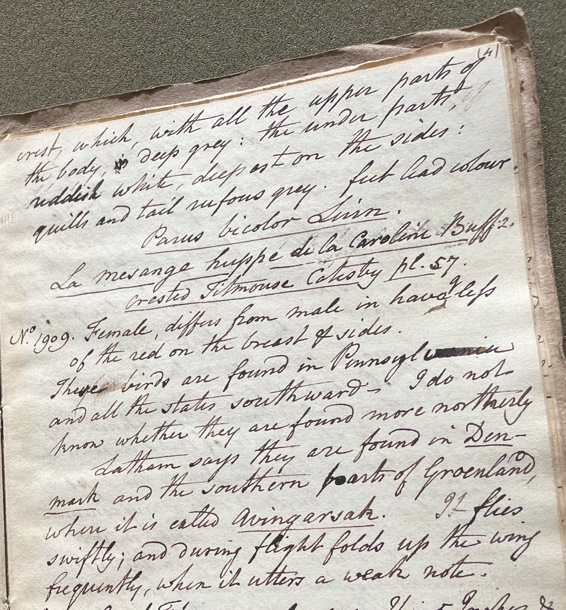 crest, which, with all the upper parts of
the body, deep grey: the under parts,
reddish white, deepest on the sides:
quills and tail rufous grey. feet lead colour.
Parus bicolor Linn.
La mesange huppe de la Caroline Buff.
crested Titmouse Catesby pl. 57.
No. 1909. Female, differs from male in having less
of the red on the breast & sides.
These birds are found in Pennsylvania
and all the states southward - I do not
know whether they are found more northerly
Latham says they are found in Den-
mark and the southern parts of Groenland,
where it is called Avingarsak. It flies
swiftly; and during flight folds up the wing
frequently, when it utters a weak note.